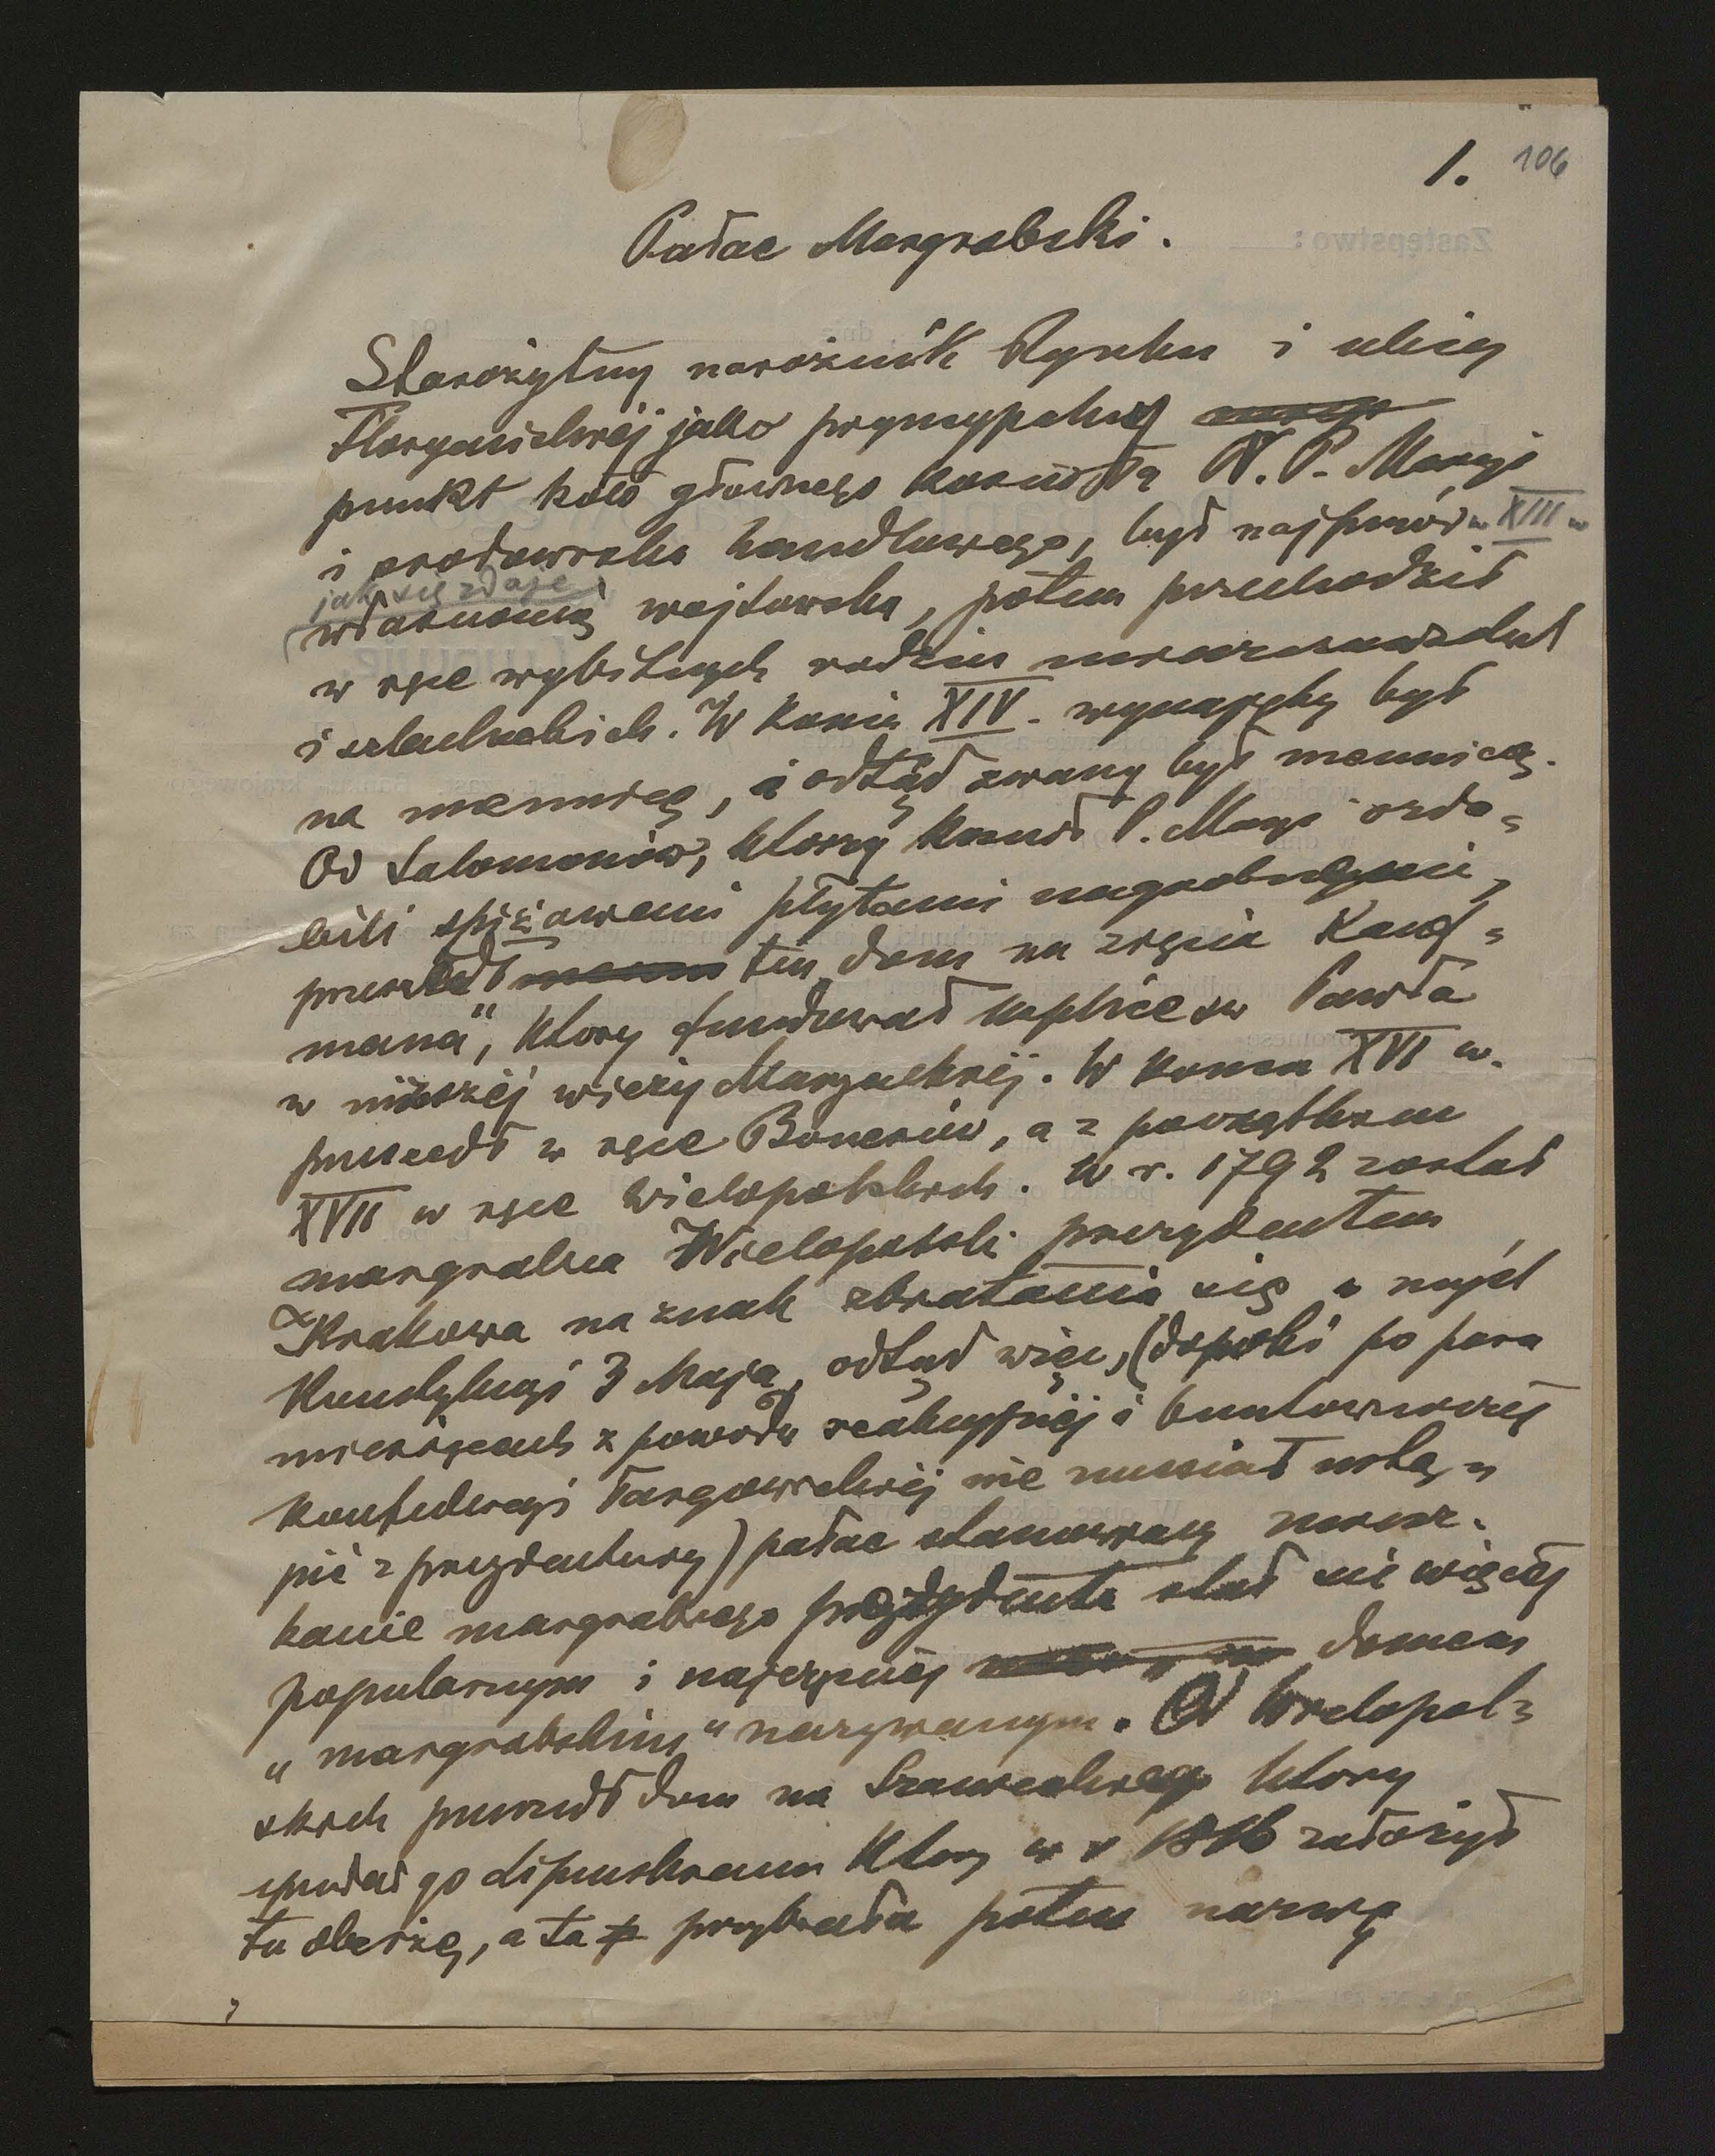 1. 106
Pałac Margrabski.
Starożytny narożnik Rynku i ulicy
Floryańskiej jako pryncypalny
punkt koło głównego kościoła N. P. Maryi
i środowiska handlowego, był najpierw w XIII w
jak się zdaje
własnością wójtowską, potem przechodził
w ręce wybitnych rodzin mieszczańskich
i szlacheckich. W końcu XIV. wynajęty był
na mennicę, i odtąd zwany był mennicą.
Od Salomonów, którzy kościół P. Maryi ozdo-
bili spiżowemi płytami nagrobnymi,
przeszedł ten dom na zięcia Kauf-
mana", który fundował kaplicę św Pawła
w niższej wieży Maryackiej. W końcu XVI w.
przeszedł w ręce Bonerów, a z początkiem
XVII w ręce Wielopolskich. W r. 1792 został
margrabia Wielopolski prezydentem
Krakowa na znak zbratania się w myśl
Konstytucyi 3 Maja, odtąd więc, (dopóki po paru
miesiącach z powodu reakcyjnej i buntowniczej
konfederacyi Targowickiej nie musiał ustą-
pić z prezydentury) pałac stanowiący miesz-
kanie margrabiego prezydenta stał się więcej
popularnym i najczęściej domem
„margrabskim" nazywanym. Od Wielopol-
skich przeszedł dom na
sprzedał go który w r założył
tu oberżę, a ta przybrała potem nazwę